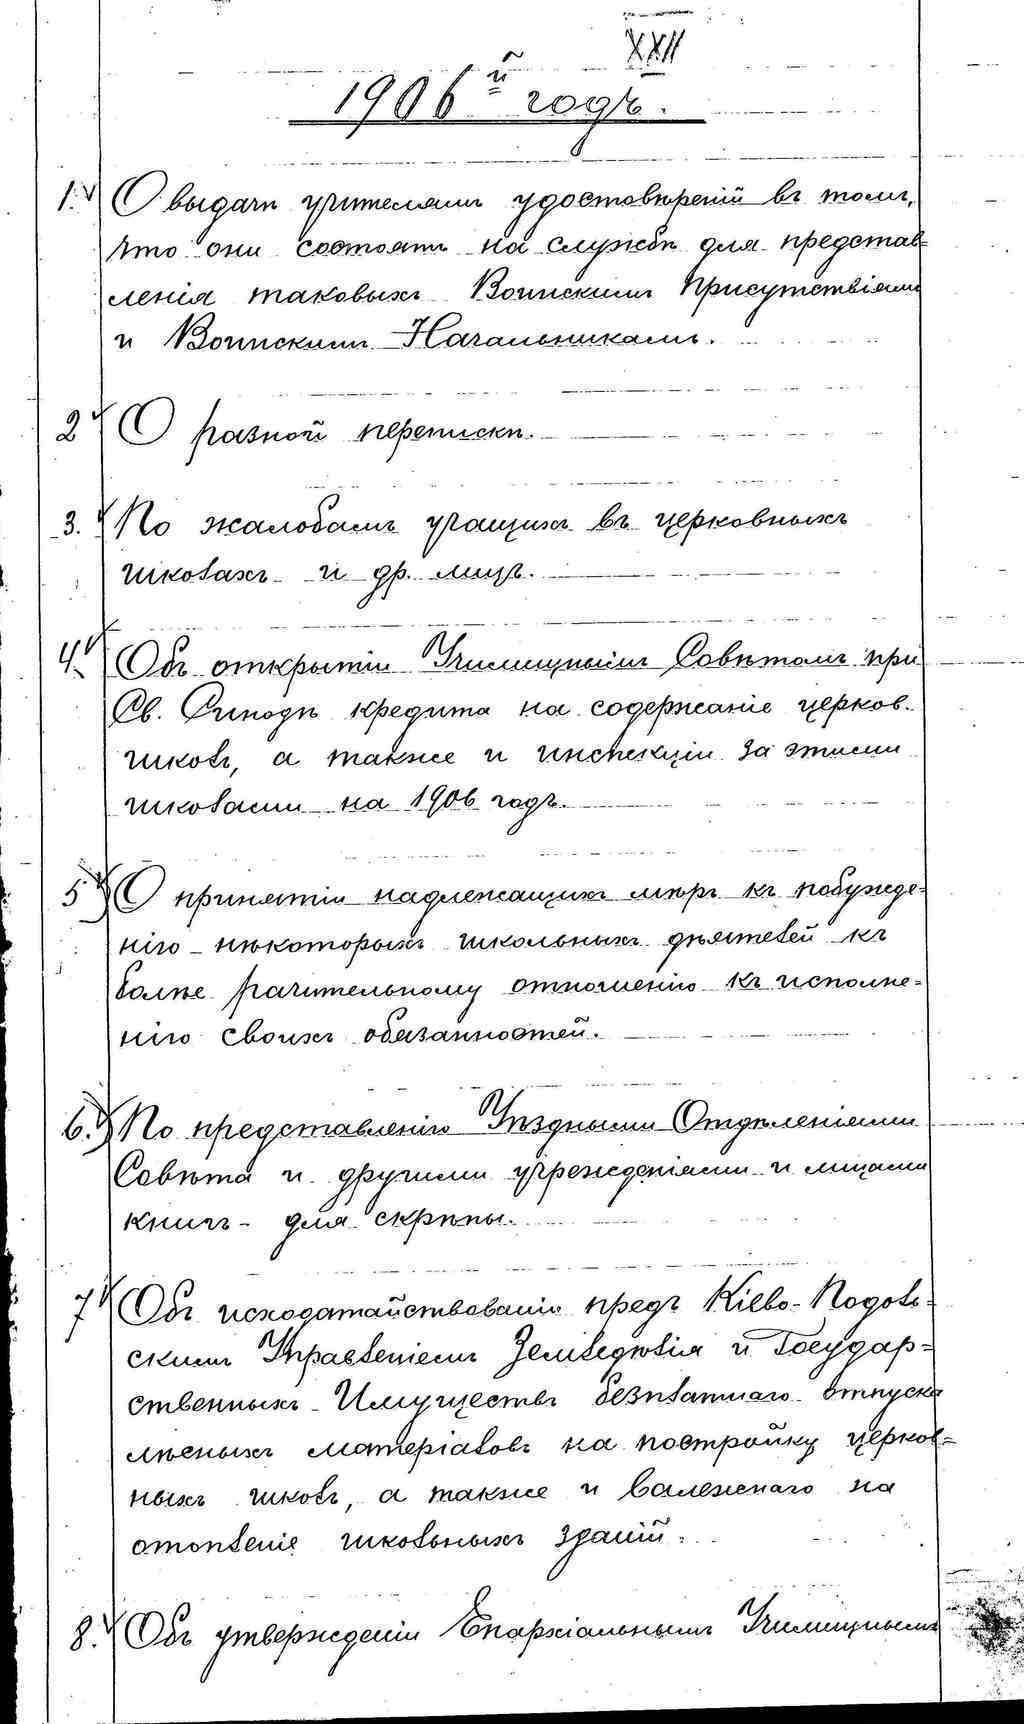 XXII
1906й годъ.
1. О выдачѣ учителямъ удостовѣреній въ томъ,
что они состоятъ на службѣ для представ=
ленія таковыхъ Воинскимъ Присутствіямъ
и Воинскимъ Начальникамъ.
2 О разной перепискѣ.
3. По жалобамъ учащихъ въ церковныхъ
школахъ и др. лицъ.
4. Объ открытіи Училищнымъ Совѣтомъ при
Св. Синодѣ кредита на содержаніе церков.
школъ, а также и инспекціи за этими
школами на 1906 годъ.
5 О принятіи надлежащихъ мѣръ къ побужде=
нію нѣкоторыхъ школьныхъ дѣятелей къ
болѣе рачительному отношенію къ исполне=
нію своихъ обязанностей.
6. По представленію Уѣздными Отдѣленіями
Совѣта и другими учрежденіями и лицами
книгъ - для скрѣпы.
7 Объ исходатайствованіи предъ Кіево-Подоль=
скимъ Управленіемъ Земледѣлія и Государ=
ственныхъ Имуществъ безплатнаго отпуска
лѣсныхъ матеріаловъ на постройку церков=
ныхъ школъ, а также и валежнаго на
отопленіе школьныхъ зданій.
8. Объ утвержденіи Епархіальнымъ Училищнымъ